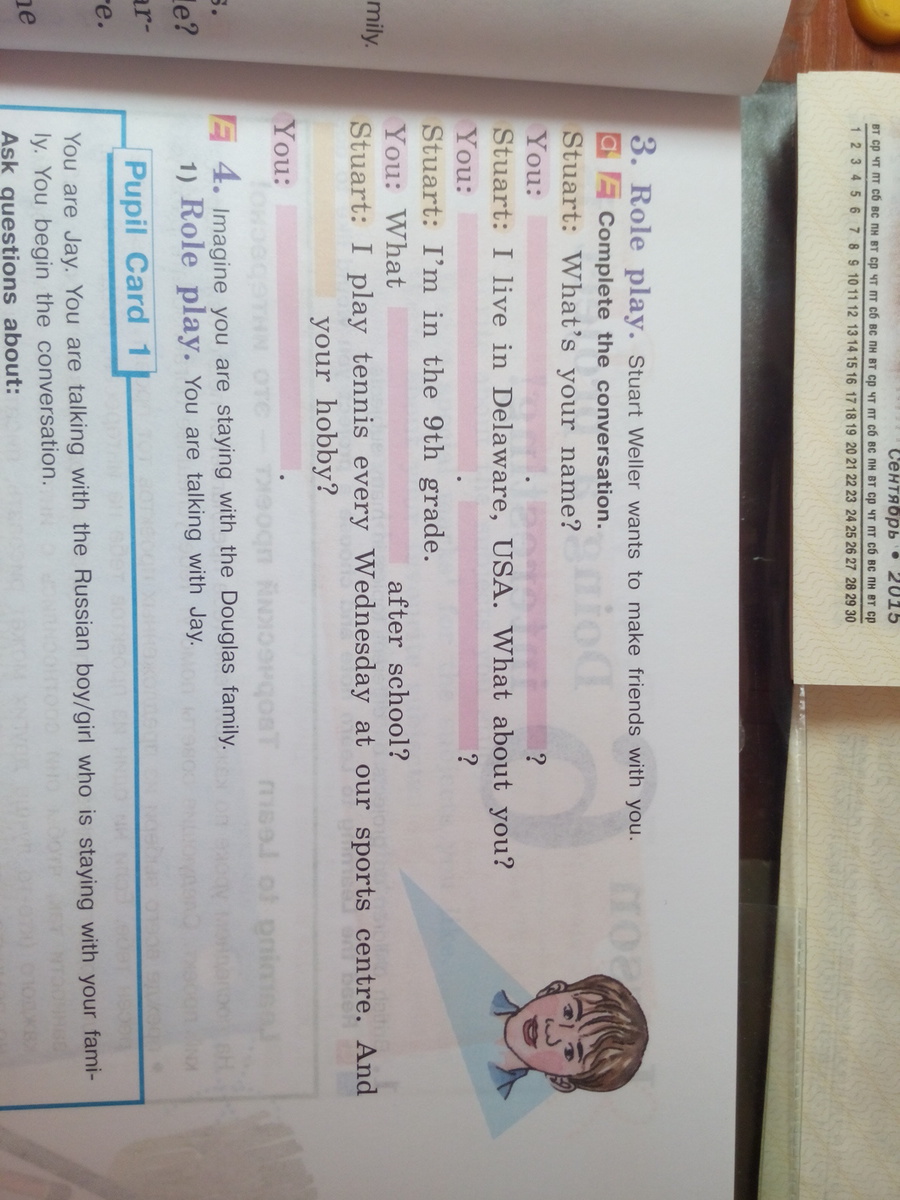 Сентябрь • 2015
вт ср чт пт сб вс пн вт ср чт пт сб вс пн вт ср чт пт сб вс пн вт ср чт пт сб вс пн вт ср
1 2 3 4 5 6 7 8 9 10 11 12 13 14 15 16 17 18 19 20 21 22 23 24 25 26 27 28 29 30
3. Role play. Stuart Weller wants to make friends with you.
Complete the conversation.
Stuart: What's your name?
You: . ?
Stuart: I live in Delaware, USA. What about you?
You: . ?
Stuart: I'm in the 9th grade.
You: What after school?
Stuart: I play tennis every Wednesday at our sports centre. And
your hobby?
You: .
4. Imagine you are staying with the Douglas family.
1) Role play. You are talking with Jay.
Pupil Card 1
You are Jay. You are talking with the Russian boy/girl who is staying with your fami-
ly. You begin the conversation.
Ask questions about:
mily.